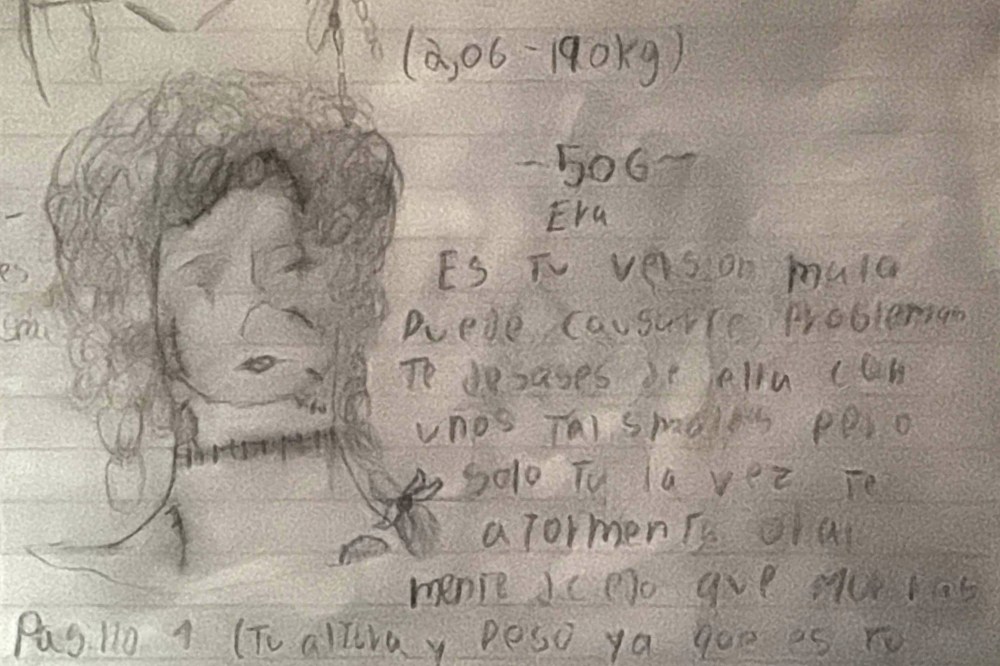 (2,06-190kg)
-506-
Era
Es Tu verson mala
puede causarte problemas
Te desases de ella con
unos Talismanes pero
solo Tu la vez Te
atormenta
mente que
(Tu altura y peso ya que es Tu